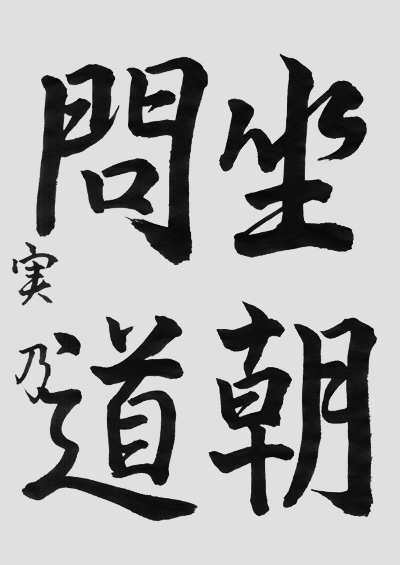 坐朝
問道
実乃